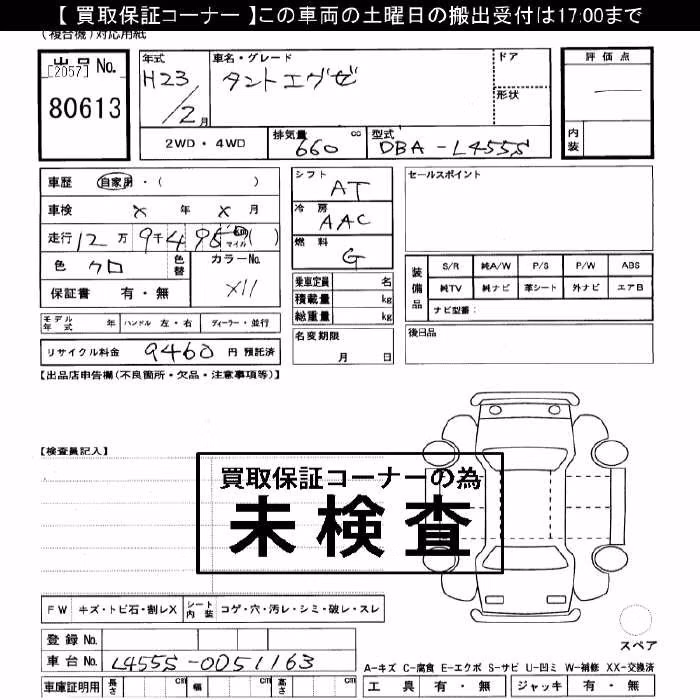 【 買取保証コーナー 】この車両の土曜日の搬出受付は17:00まで
(複合機)対応用紙
出品No.
[2057]
80613
年式
H23/2月
車名・グレード
タントエグゼ
ドア
形状
評価点
内装
2WD・4WD
排気量 660 cc
型式 DBA-L455S
車歴 自家用・( )
車検 X 年 X 月
走行 12万9千495 km マイル ( )
色 クロ
色替
カラーNo. X11
保証書 有・無
シフト AT
冷房 AAC
燃料 G
乗車定員 名
積載量 kg
総重量 kg
名変期限
月 日
セールスポイント
装備品
S/R 純A/W P/S P/W ABS
純TV 純ナビ 革シート 外ナビ エアB
ナビ型番:
後日品
モデル年式 年 ハンドル 左・右 ディーラー・並行
リサイクル料金 9460 円 預託済
【出品店申告欄(不良箇所・欠品・注意事項等)】
【検査員記入】
買取保証コーナーの為
未検査
FW キズ・トビ石・割レX シート内装 コゲ・穴・汚レ・シミ・破レ・スレ
登録No.
車台No. L455S-0051163
車庫証明用 長さ cm 幅 cm 高さ cm
スペア
A-キズ C-腐食 E-エクボ S-サビ U-凹ミ W-補修 XX-交換済
工具 有・無 ジャッキ 有・無